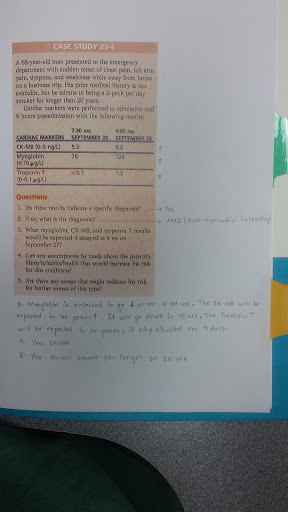 CASE STUDY 25-4
A 68-year-old man presented to the emergency
department with sudden onset of chest pain, left arm
pain, dyspnea, and weakness while away from home
on a business trip. His prior medical history is not
available, but he admits to being a 2-pack per day
smoker for longer than 20 years.
Cardiac markers were performed at admission and
8 hours postadmission with the following results:
7:30 AM, 4:00 PM,
CARDIAC MARKERS SEPTEMBER 26 SEPTEMBER 26
CK-MB (0–5 ng/L) 5.3 9.2 ↑
Myoglobin 76 124 ↑
(<70 µg/L)
Troponin T <0.1 1.3 ↑
(0–0.1 µg/L)
Questions
1. Do these results indicate a specific diagnosis? → Yes
2. If so, what is the diagnosis? → AMI (Acute myocardial
3. What myoglobin, CK-MB, and troponin T results
would be expected if assayed at 4 PM on
September 27?
4. Can any assumptions be made about the patient's
lifestyle/habits/health that would increase his risk
for this condition?
5. Are there any assays that might indicate his risk
for further events of this type?
3- Myoglobin is expected to go ↓ after 18-24 hrs. The CK-MB will be
expected to be peak ↑. It will go down in 72 hrs. The Troponin T
will be expected to be peak, it stay elevated for 7 days.
4- Yes, smoke
5- Yes, smoke for longer of 20 yrs